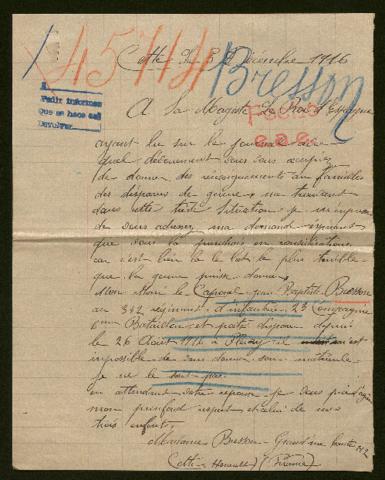 45714
Bresson
Cette le 5 Décembre 1916
A
Pedir informes
que se hace
Devolver
A Sa Majesté Le Roi d'Espagne
ayant lu sur le journal avec
quel dévouement vous vous occupez
de donner des renseignements aux familles
des disparus de guerre, me trouvant
dans cette triste situation je
de vous adresser ma demande espérant
que vous la prendrez en considération
car c'est bien là le lot le plus terrible
que la guerre puisse donner
Mon Mari le Caporal Jean Baptiste Bresson
au 342 régiment d'infanterie 23 Compagnie
6me Bataillon est porté disparu depuis
le 26 Août
impossible de vous donner son matricule
je ne le sait pas.
en attendant votre réponse je vous prie d'agréer
mon profond respect et celui de mes
trois enfants,
Madame Bresson Grand rue haute
Cette Hérault (France)